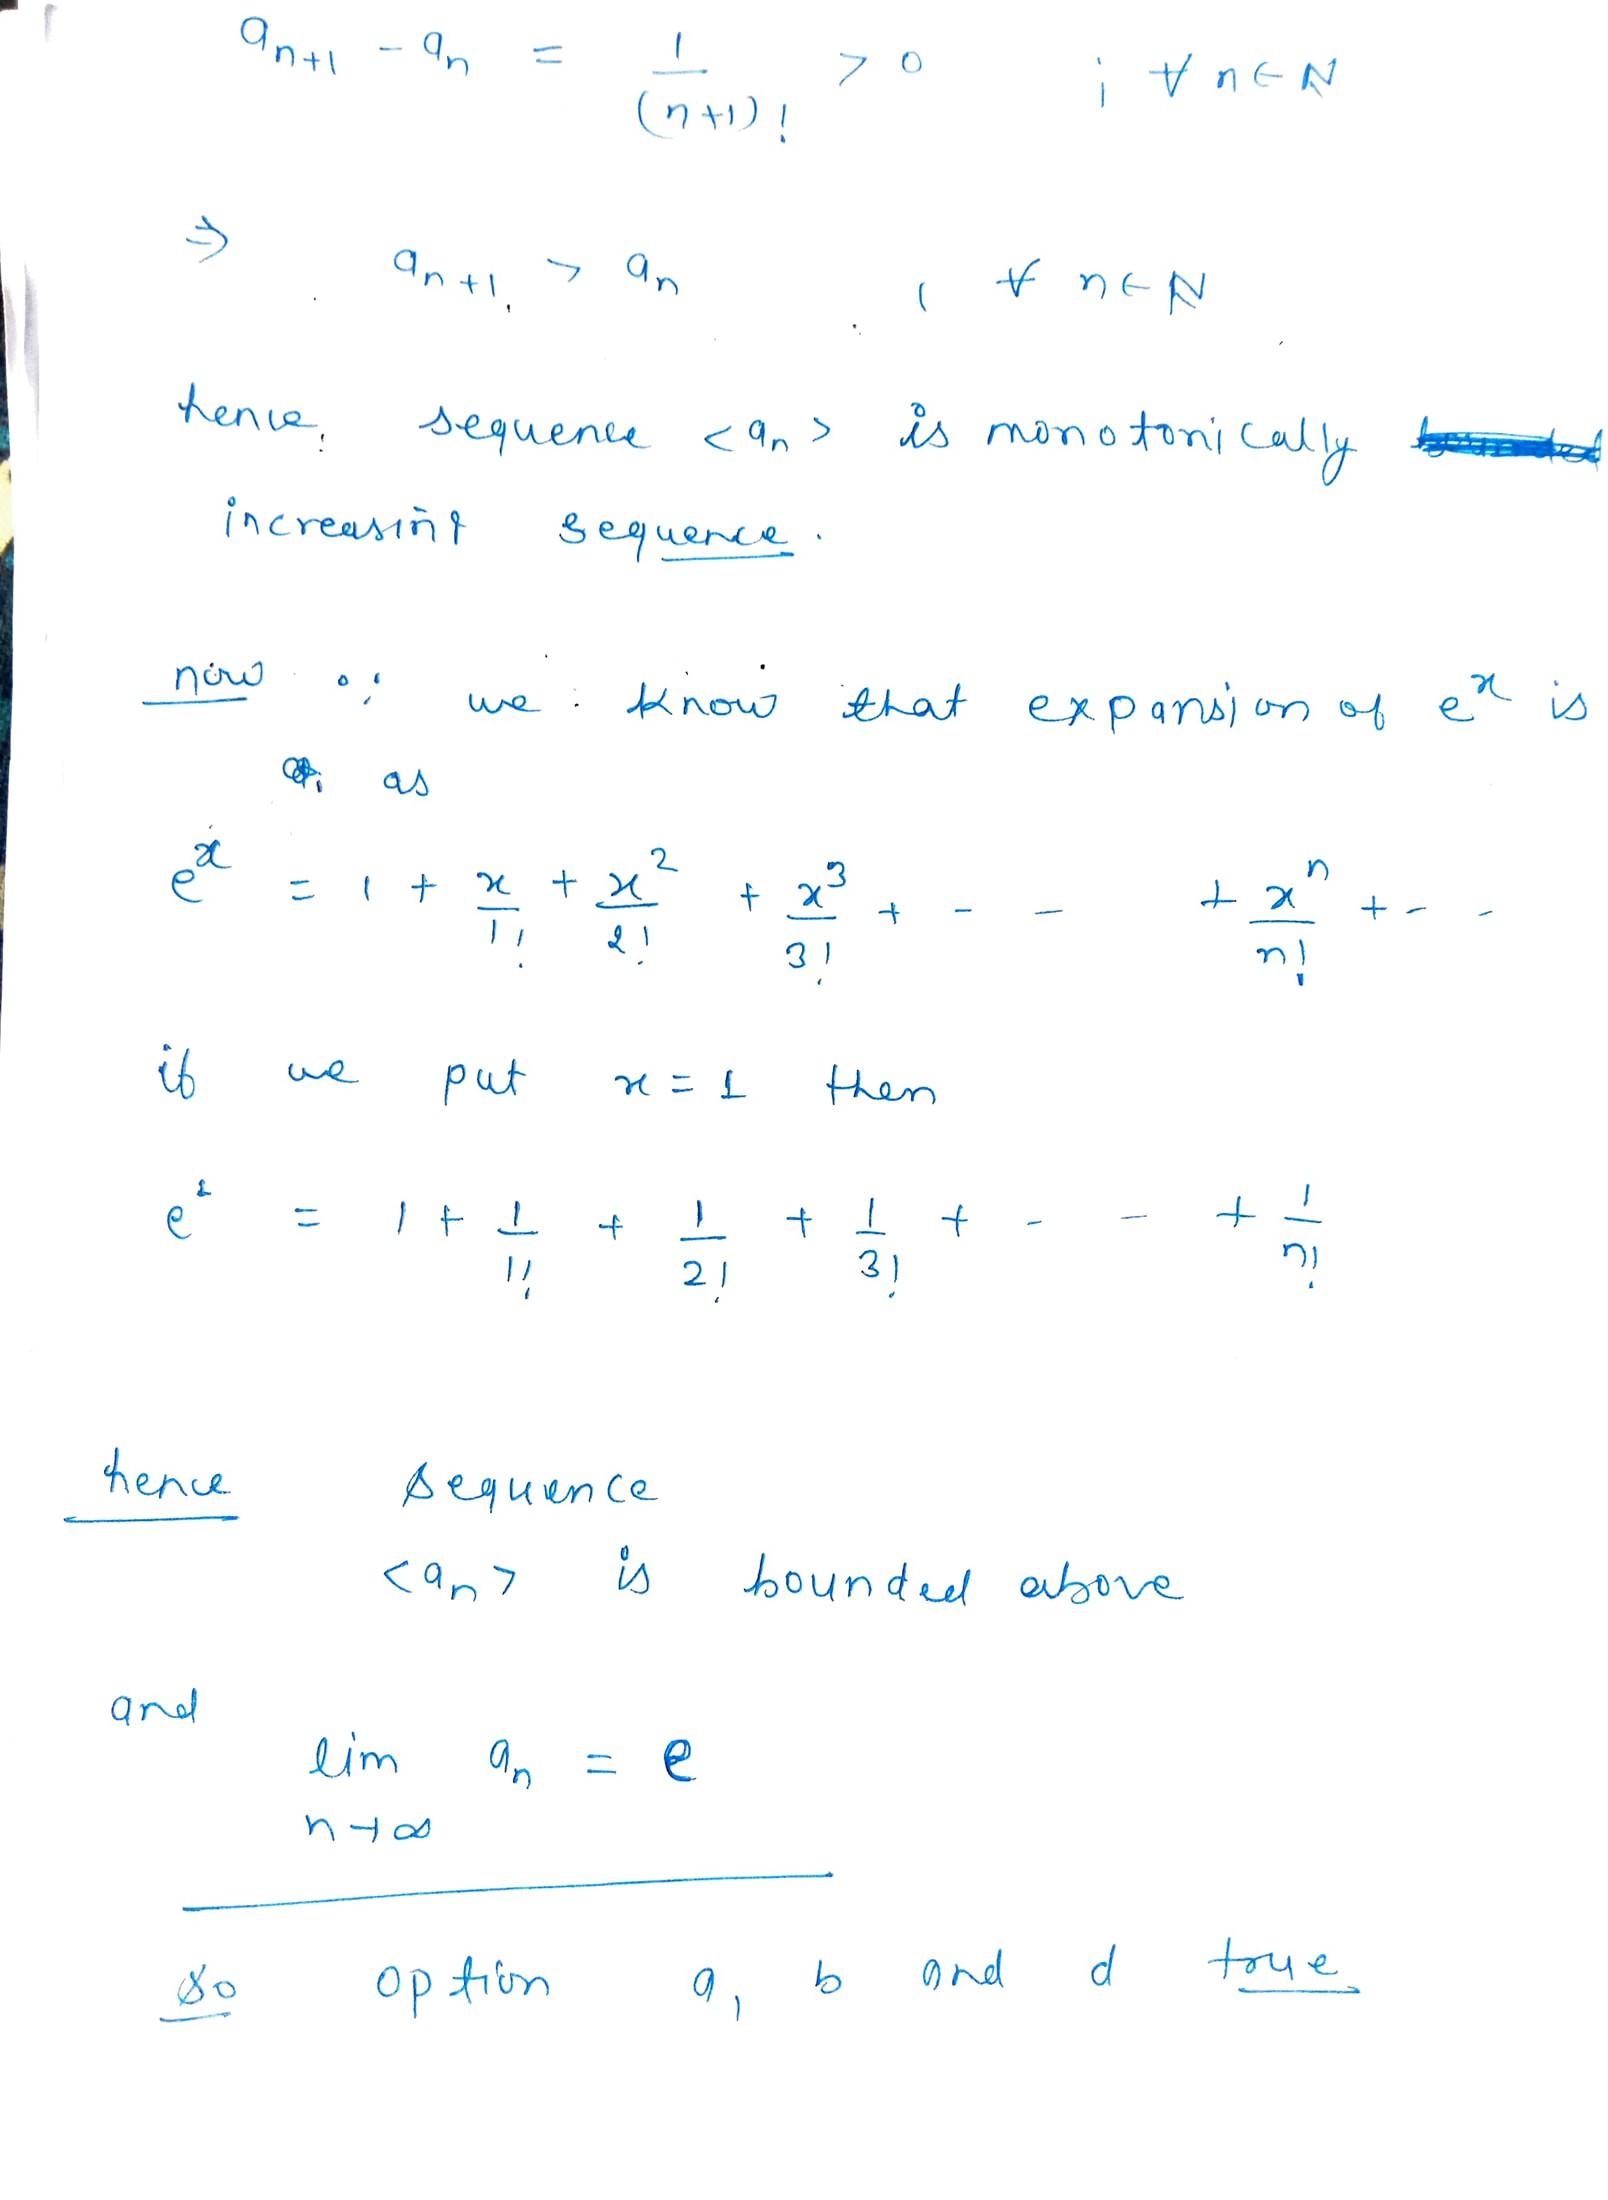 a_{n+1} - a_n = 1/(n+1)! > 0 ; ∀ n ∈ N
⇒ a_{n+1} > a_n , ∀ n ∈ N
hence, sequence <a_n> is monotonically
increasing sequence.
now ∵ we know that expansion of e^x is
as
e^x = 1 + x/1! + x^2/2! + x^3/3! + - - + x^n/n! + - -
if we put x = 1 then
e^1 = 1 + 1/1! + 1/2! + 1/3! + - - + 1/n!
hence sequence
<a_n> is bounded above
and
lim a_n = e
n→∞
so option a, b and d true.